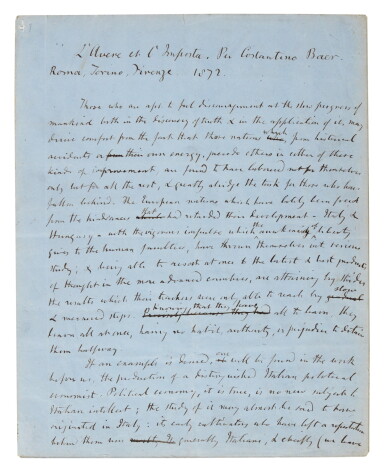 L'Avere et l'Imposta. Per Costantino Baer.
Roma, Torino, Firenze 1872.
Those who are apt to feel discouragement at the slow progress of
mankind both in the discovery of truth & in the application of it, may
derive comfort from the fact that those nations which from historical
accidents or from their own energy, precede others in either of these
kinds of improvement, are found to have laboured not for themselves
only but for all the rest, & greatly abridge the task for those who have
fallen behind. The European nations which have lately been freed
from the hindrances that had retarded their development - Italy &
Hungary - with the vigorous impulse which the awakening of liberty
gives to the human faculties, have thrown themselves into serious
study; & being able to resort at once to the latest & best products
of thought in the more advanced countries, are attaining by strides
the results which their teachers were only able to reach by slow
& measured steps. Knowing that they have all to learn they
learn all at once, having no habit, authority, or prejudice to detain
them halfway.
If an example is desired, one will be found in the work
before us, the production of a distinguished Italian political
economist. Political economy, it is true, is no new subject to
Italian intellect; the study of it may almost be said to have
originated in Italy: its early cultivators who have left a reputation
behind them were generally Italians, & chiefly (we have